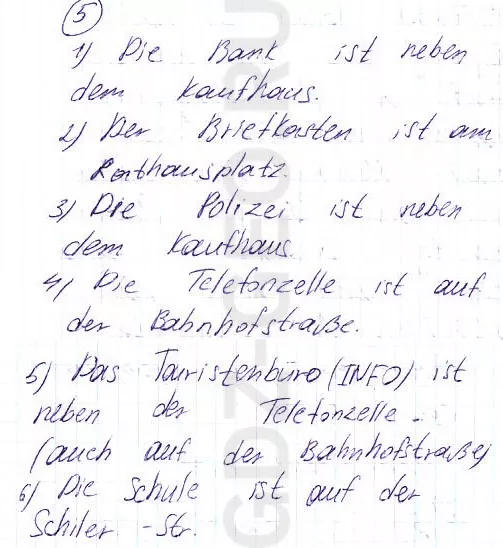 5
1) Die Bank ist neben
dem Kaufhaus.
2) Der Briefkasten ist am
Rathausplatz.
3) Die Polizei ist neben
dem Kaufhaus.
4) Die Telefonzelle ist auf
der Bahnhofstraße.
5) Das Touristenbüro (INFO) ist
neben der Telefonzelle.
(auch auf der Bahnhofstraße)
6) Die Schule ist auf der
Schiler-Str.
GDZ-GEO.RU